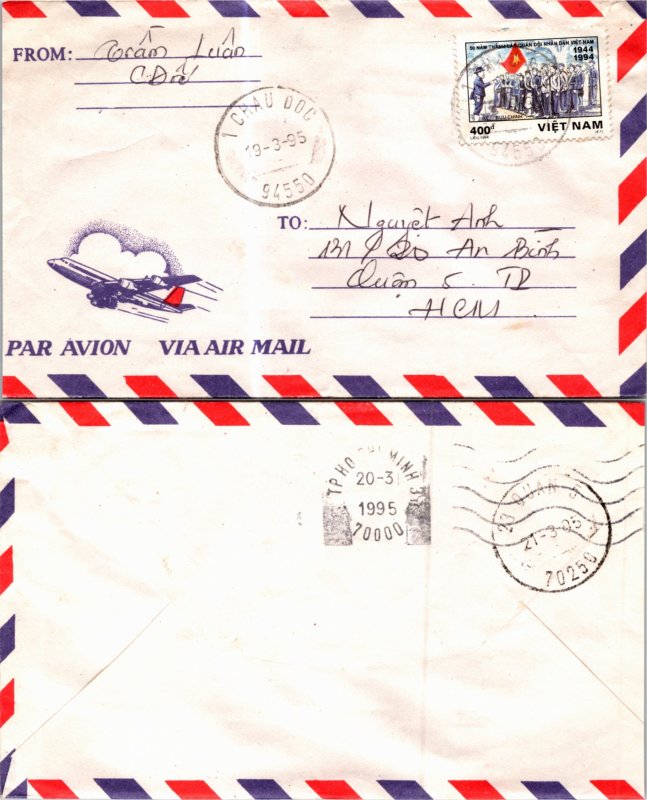 FROM: Trần Luân
CĐốc
50 NĂM THÀNH LẬP QUÂN ĐỘI NHÂN DÂN VIỆT NAM
1944
1994
BƯU CHÍNH
400đ VIỆT NAM
1 CHAU DOC
19-3-95
94550
94550
TO: Nguyệt Anh
An Bình
Quận 5. TP
HCM
PAR AVION VIA AIR MAIL
TP HO CHI MINH
20-3
1995
70000
20 QUAN 5
21-3-95
70250